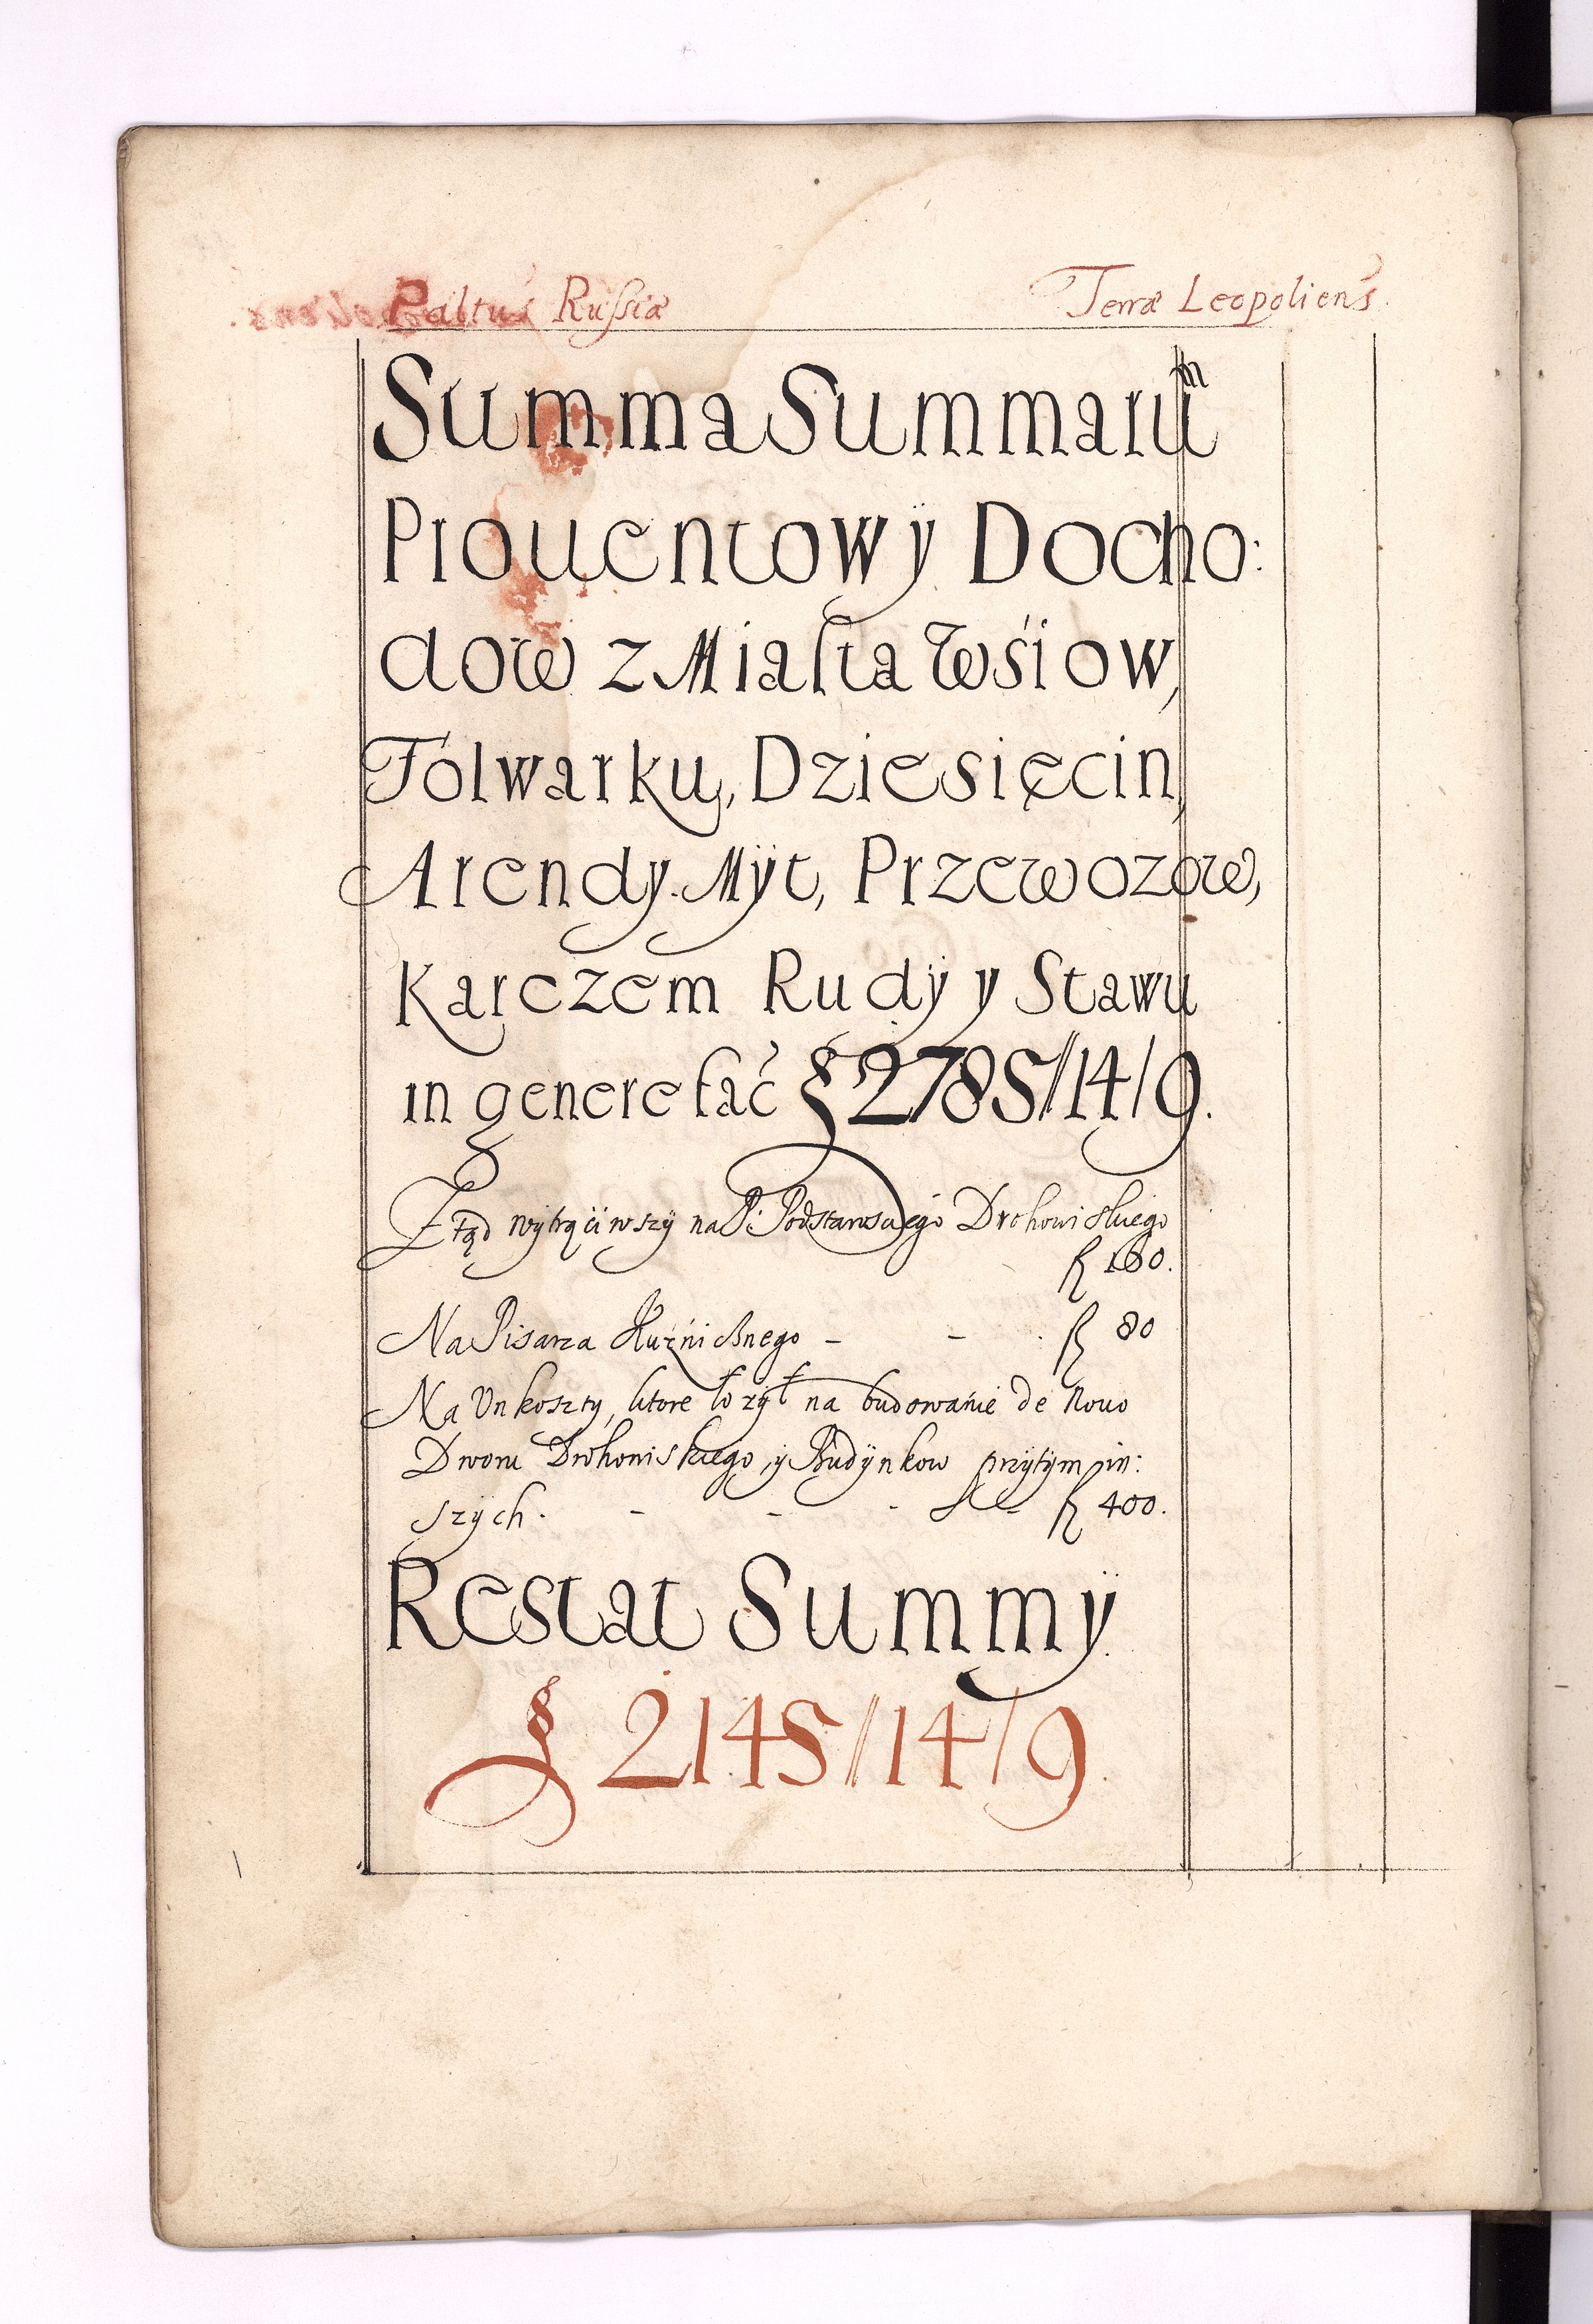 Paltus Russiæ Terræ Leopoliens.
Summa Summaru͠m
Prouentowÿ Docho:
dow z Miasta Wśiow,
Folwarku, Dziesięcin,
Arendy. Mÿt, Przewozow,
Karczem Rudÿ y Stawu
in genere fać 2785//14/9.
Ztąd wÿtrąćiwszÿ na P. Podstarosciego Drohowiskiego
160.
Na Pisarza Kuźnicznego - - 80
Na Unkoszty, ktore łozÿł na budowańie de Nouo
Dworu Drohowiskiego, ÿ Budÿnkow przÿtÿm in:
szÿch. - - - 400.
Restat Summÿ.
2145//14/9.